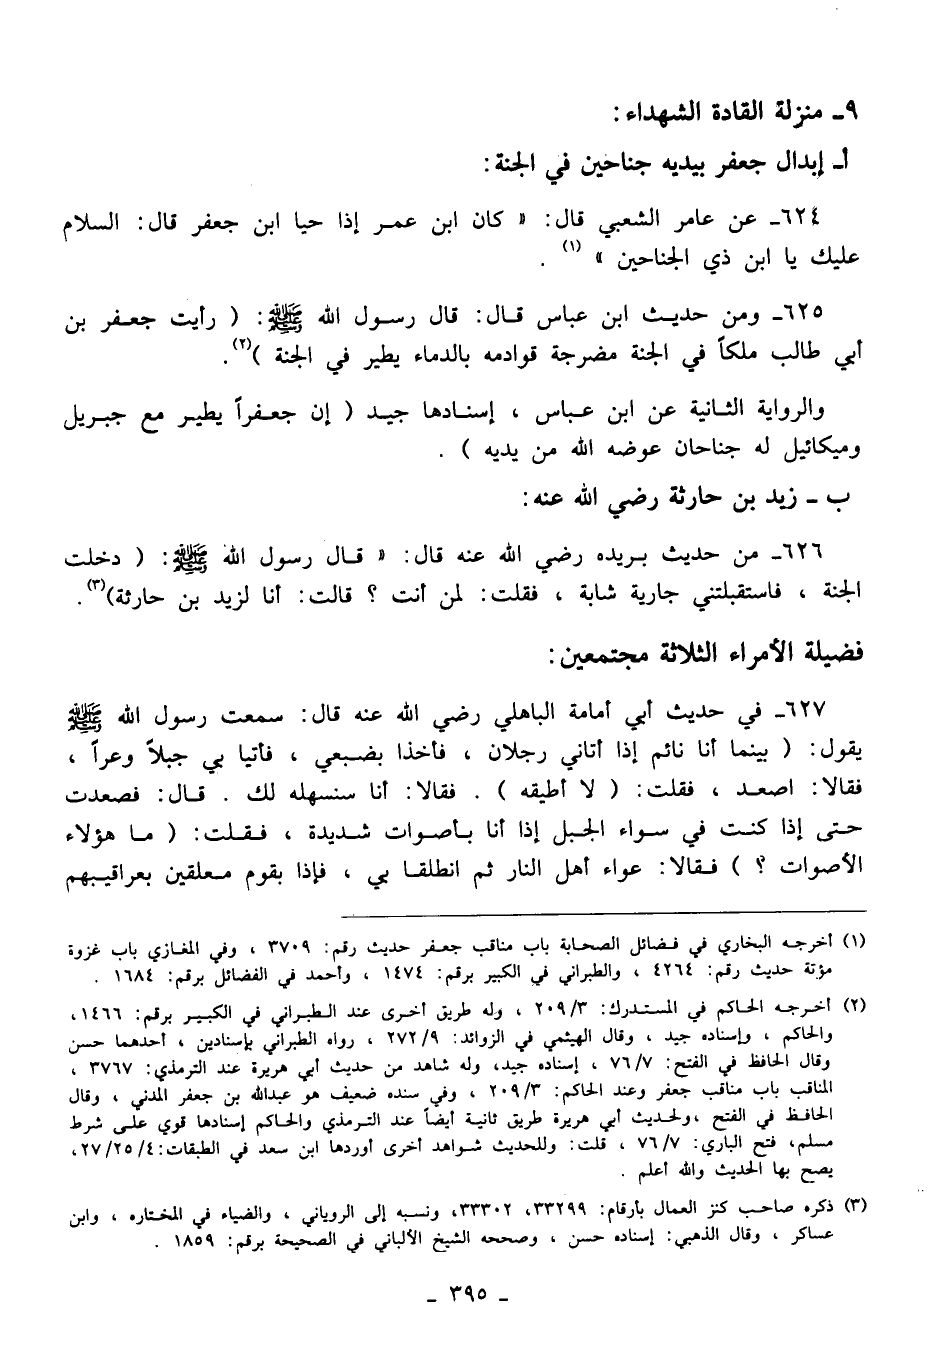 ٩ـ منزلة القادة الشهداء:
أـ إبدال جعفر بيديه جناحين في الجنة:
٦٢٤ـ عن عامر الشعبي قال: « كان ابن عمر إذا حيا ابن جعفر قال: السلام
عليك يا ابن ذي الجناحين » (١) .
٦٢٥ـ ومن حديث ابن عباس قال: قال رسول الله ﷺ: ( رأيت جعفر بن
أبي طالب ملكاً في الجنة مضرجة قوادمه بالدماء يطير في الجنة )(٢).
والرواية الثانية عن ابن عباس ، إسنادها جيد ( إن جعفراً يطير مع جبريل
وميكائيل له جناحان عوضه الله من يديه ) .
ب ـ زيد بن حارثة رضي الله عنه:
٦٢٦ـ من حديث بريده رضي الله عنه قال: « قال رسول الله ﷺ: ( دخلت
الجنة ، فاستقبلتني جارية شابة ، فقلت: لمن أنت ؟ قالت: أنا لزيد بن حارثة)(٣).
فضيلة الأمراء الثلاثة مجتمعين:
٦٢٧ـ في حديث أبي أمامة الباهلي رضي الله عنه قال: سمعت رسول الله ﷺ
يقول: ( بينما أنا نائم إذا أتاني رجلان ، فأخذا بضبعي ، فأتيا بي جبلاً وعراً ،
فقالا: اصعد ، فقلت: ( لا أطيقه ) . فقالا: أنا سنسهله لك . قال: فصعدت
حتى إذا كنت في سواء الجبل إذا أنا بأصوات شديدة ، فقلت: ( ما هؤلاء
الأصوات ؟ ) فقالا: عواء أهل النار ثم انطلقا بي ، فإذا بقوم معلقين بعراقيبهم
(١) أخرجه البخاري في فضائل الصحابة باب مناقب جعفر حديث رقم: ٣٧٠٩ ، وفي المغازي باب غزوة
مؤتة حديث رقم: ٤٢٦٤ ، والطبراني في الكبير برقم: ١٤٧٤ ، وأحمد في الفضائل برقم: ١٦٨٤ .
(٢) أخرجه الحاكم في المستدرك: ٢٠٩/٣ ، وله طريق أخرى عند الطبراني في الكبير برقم: ١٤٦٦،
والحاكم ، وإسناده جيد ، وقال الهيثمي في الزوائد: ٢٧٢/٩ ، رواه الطبراني بإسنادين ، أحدهما حسن
وقال الحافظ في الفتح: ٧٦/٧ ، إسناده جيد، وله شاهد من حديث أبي هريرة عند الترمذي: ٣٧٦٧ ،
المناقب باب مناقب جعفر وعند الحاكم: ٢٠٩/٣ ، وفي سنده ضعيف هو عبدالله بن جعفر المدني ، وقال
الحافظ في الفتح ،ولحديث أبي هريرة طريق ثانية أيضاً عند الترمذي والحاكم إسنادها قوي على شرط
مسلم، فتح الباري: ٧٦/٧ ، قلت: وللحديث شواهد أخرى أوردها ابن سعد في الطبقات:٢٧/٢٥/٤،
يصح بها الحديث والله أعلم .
(٣) ذكره صاحب كنز العمال بأرقام: ٣٣٢٩٩، ٣٣٣٠٢، ونسبه إلى الروياني ، والضياء في المختاره ، وابن
عساكر ، وقال الذهبي: إسناده حسن ، وصححه الشيخ الألباني في الصحيحة برقم: ١٨٥٩ .
ـ ٣٩٥ ـ